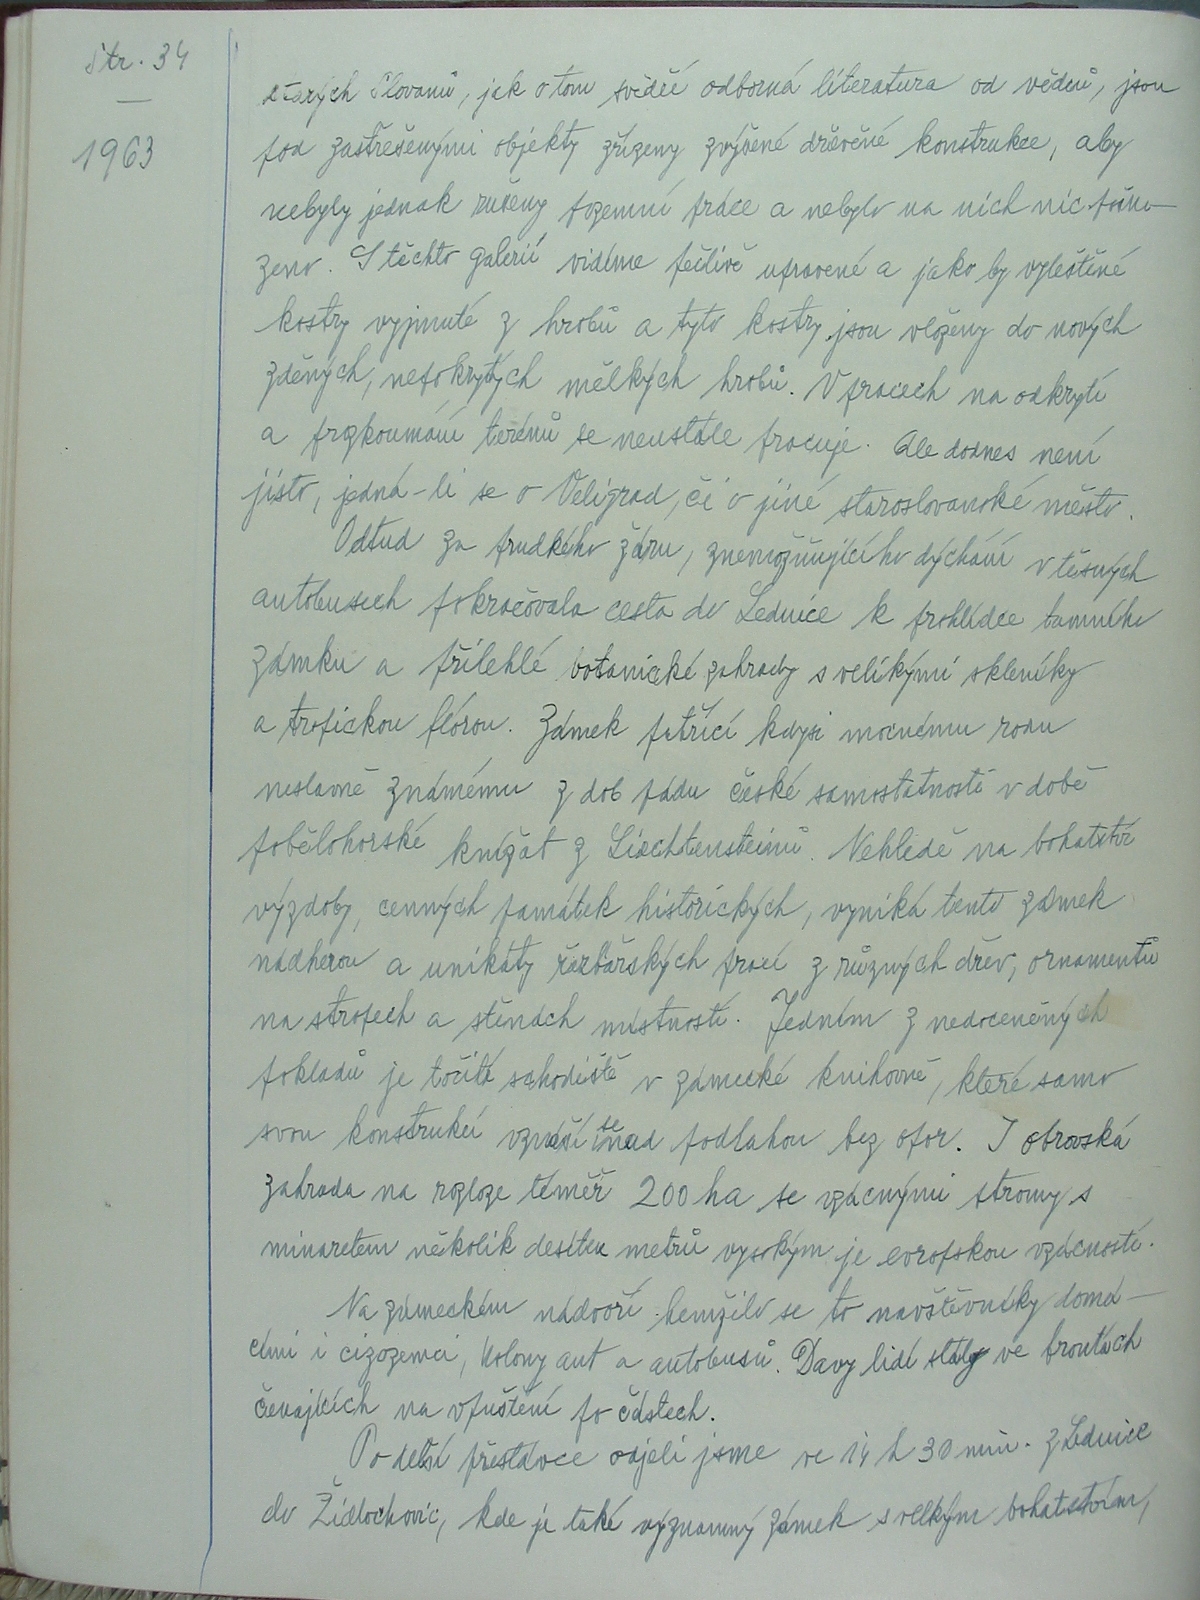 Str. 34
1963
starých Slovanů, jak o tom svědčí odborná literatura od vědců, jsou
pod zastřešenými objekty zřízeny zvýšené dřevěné konstrukce, aby
nebyly jednak rušeny pozemní práce a nebylo na nich nic poško-
zeno. S těchto galerií vidíme pečlivě upravené a jako by vyleštěné
kostry vyjmuté z hrobů a tyto kostry jsou vloženy do nových
zděných, nepokrytých mělkých hrobů. V pracech na odkrytí
a prozkoumání terénů se neustále pracuje. Ale dodnes není
jisto, jedná-li se o Veligrad, či o jiné staroslovanské město.
Odtud za prudkého žáru, znemožňujícího dýchání v těsných
autobusech pokračovala cesta do Lednice k prohlídce tamního
zámku a přilehlé botanické zahrady s velikými skleníky
a tropickou flórou. Zámek patřící kdysi mocnému rodu
neslavně známému z dob pádu české samostatnosti v době
pobělohorské knížat z Liechtensteinů. Nehledě na bohatství
výzdoby, cenných památek historických, vyniká tento zámek
nádherou a unikáty řezbářských prací z různých dřev, ornamentů
na stropech a stěnách místností. Jedním z nedoceněných
pokladů je točité schodiště v zámecké knihovně, které samo
svou konstrukcí vznáší se nad podlahou bez opor. I obrovská
zahrada na rozloze téměř 200 ha se vzácnými stromy s
minaretem několik desítek metrů vysokým je evropskou vzácností.
Na zámeckém nádvoří hemžilo se to navštěvníky domá-
cími i cizozemci, kolony aut a autobusů. Davy lidí stály ve frontách
čekajících na vpuštění po částech.
Po delší přestávce odjeli jsme ve 14 h 30 min. z Lednice
do Židlochovic, kde je také významný zámek s velkým bohatstvím,